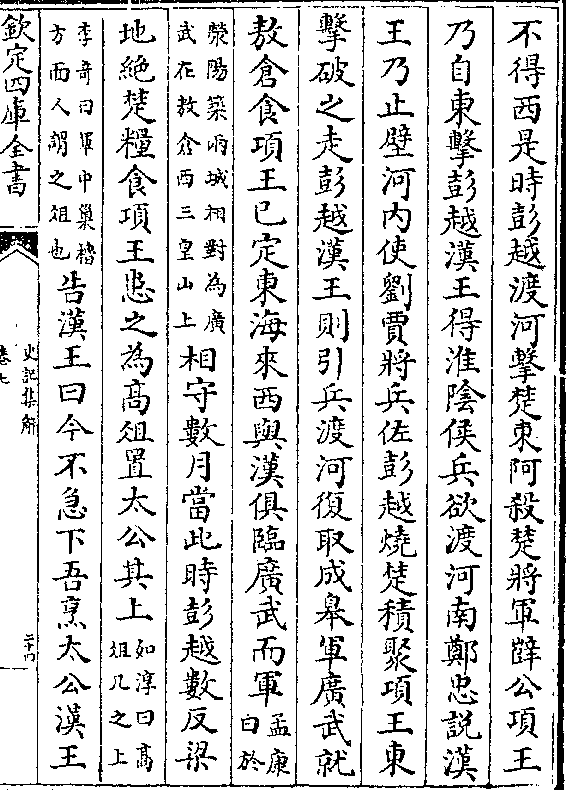 不得西是時彭越渡河擊楚東阿殺楚將軍薛公項王
乃自東擊彭越漢王得淮陰侯兵欲渡河南鄭忠説漢
王乃止壁河内使劉賈將兵佐彭越燒楚積聚項王東
擊破之走彭越漢王則引兵渡河復取成臯軍廣武就
敖倉食項王已定東海來西與漢俱臨廣武而軍孟康曰於
滎陽築兩城相對為廣武在敖倉西三皇山上相守數月當此時彭越數反梁
地絶楚糧食項王患之為高俎置太公其上如淳曰高俎几之上
李奇曰軍中巢櫓方面人謂之俎也告漢王曰今不急下吾烹太公漢王
欽定四庫全書
史記集解
卷七
二十四